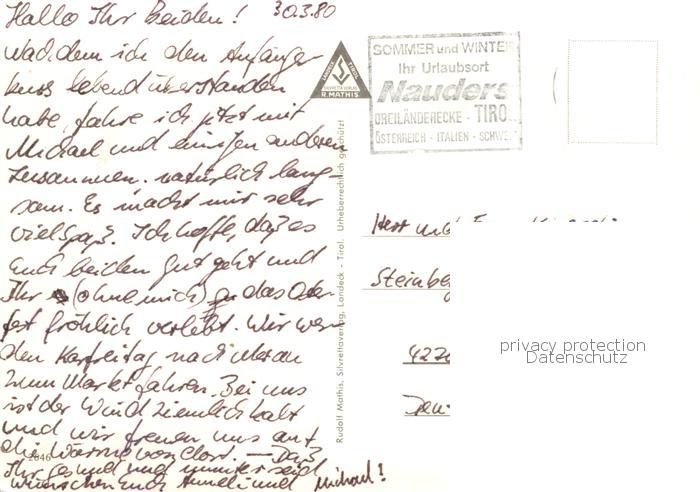 Hallo Ihr beiden! 30.3.80
Nachdem ich den Anfänger-
kurs lebend überstanden
habe, fahre ich jetzt mit
Michael und einigen anderen
zusammen. natürlich lang-
sam. Es macht mir sehr
viel Spaß. Ich hoffe, daß es
Euch beiden gut geht und
Ihr (ohne mich) das Oster-
fest fröhlich verlebt. Wir wer-
den Karfreitag nach Meran
zum Markt fahren. Bei uns
ist der Wind ziemlich kalt
und wir freuen uns auf
die Wärme von dort. — Daß
Ihr gesund und munter seid
wünschen Euch Anneli und Michael!
2046
LANDECK TIROL
SILVRETTA VERLAG
R. MATHIS
Rudolf Mathis, Silvrettaverlag, Landeck - Tirol. Urheberrechtlich geschützt
SOMMER und WINTER
Ihr Urlaubsort
Nauders
DREILÄNDERECKE - TIRO
ÖSTERREICH - ITALIEN - SCHWE
Herr und
Steinbe
422
privacy protection
Datenschutz